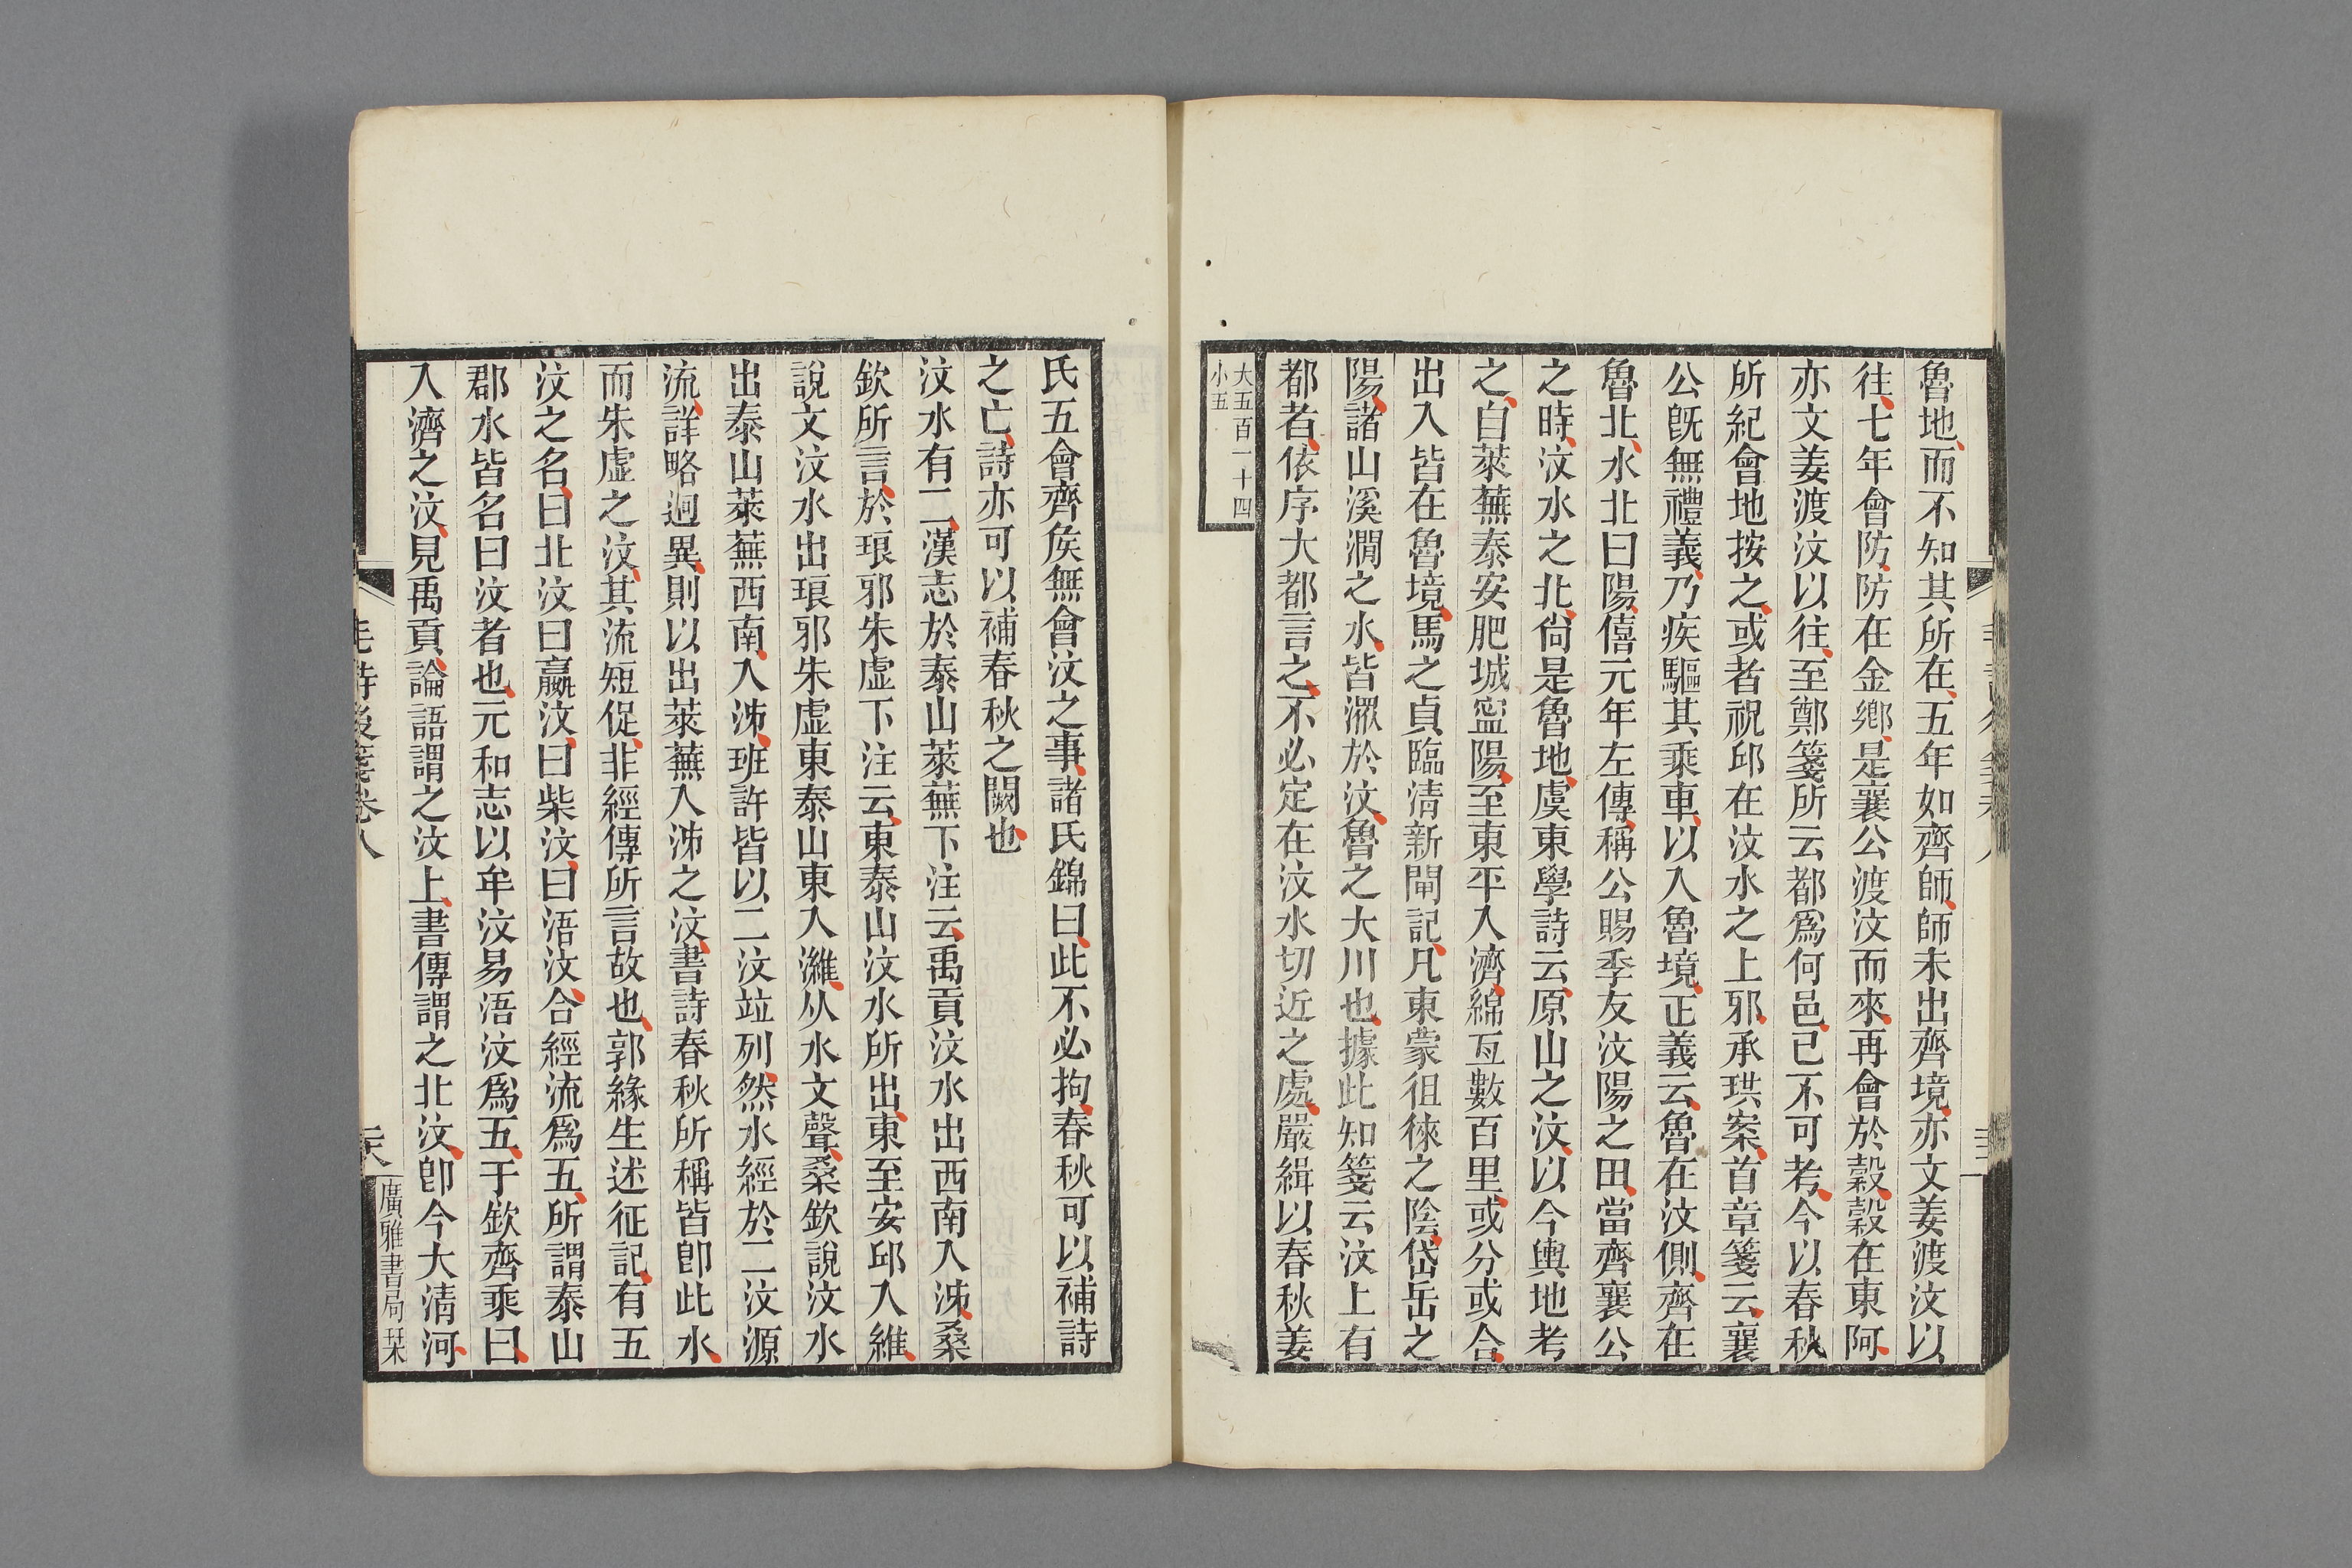 魯地而不知其所在五年如齊師師未出齊境亦文姜渡汶以
往七年會防防在金鄉是襄公渡汶而來再會於穀穀在東阿
亦文姜渡汶以往至鄭箋所云都爲何邑已不可考今以春秋
所紀會地按之或者祝邱在汶水之上邪承珙案首章箋云襄
公既無禮義乃疾驅其乘車以入魯境正義云魯在汶側齊在
魯北水北曰陽僖元年左傳稱公賜季友汶陽之田當齊襄公
之時汶水之北尙是魯地虞東學詩云原山之汶以今輿地考
之自萊蕪泰安肥城寍陽至東平入濟綿亙數百里或分或合
出入皆在魯境馬之貞臨清新閘記凡東蒙徂徠之陰岱岳之
陽諸山溪澗之水皆灉於汶魯之大川也據此知箋云汶上有
都者依序大都言之不必定在汶水切近之處嚴緝以春秋姜
大五百一十四
小五
氏五會齊矦無會汶之事諸氏錦曰此不必拘春秋可以補詩
之亡詩亦可以補春秋之闕也
汶水有二漢志於泰山萊蕪下注云禹貢汶水出西南入泲桑
欽所言於琅邪朱虛下注云東泰山汶水所出東至安邱入維
說文汶水出琅邪朱虛東泰山東入濰从水文聲桑欽說汶水
出泰山萊蕪西南入泲班許皆以二汶竝列然水經於二汶源
流詳略迥異則以出萊蕪入泲之汶書詩春秋所稱皆卽此水
而朱虛之汶其流短促非經傳所言故也郭緣生述征記有五
汶之名曰北汶曰嬴汶曰柴汶曰浯汶合經流爲五所謂泰山
郡水皆名曰汶者也元和志以牟汶易浯汶爲五于欽齊乘曰
入濟之汶見禹貢論語謂之汶上書傳謂之北汶卽今大清河
毛詩後箋卷八
廣雅書局栞